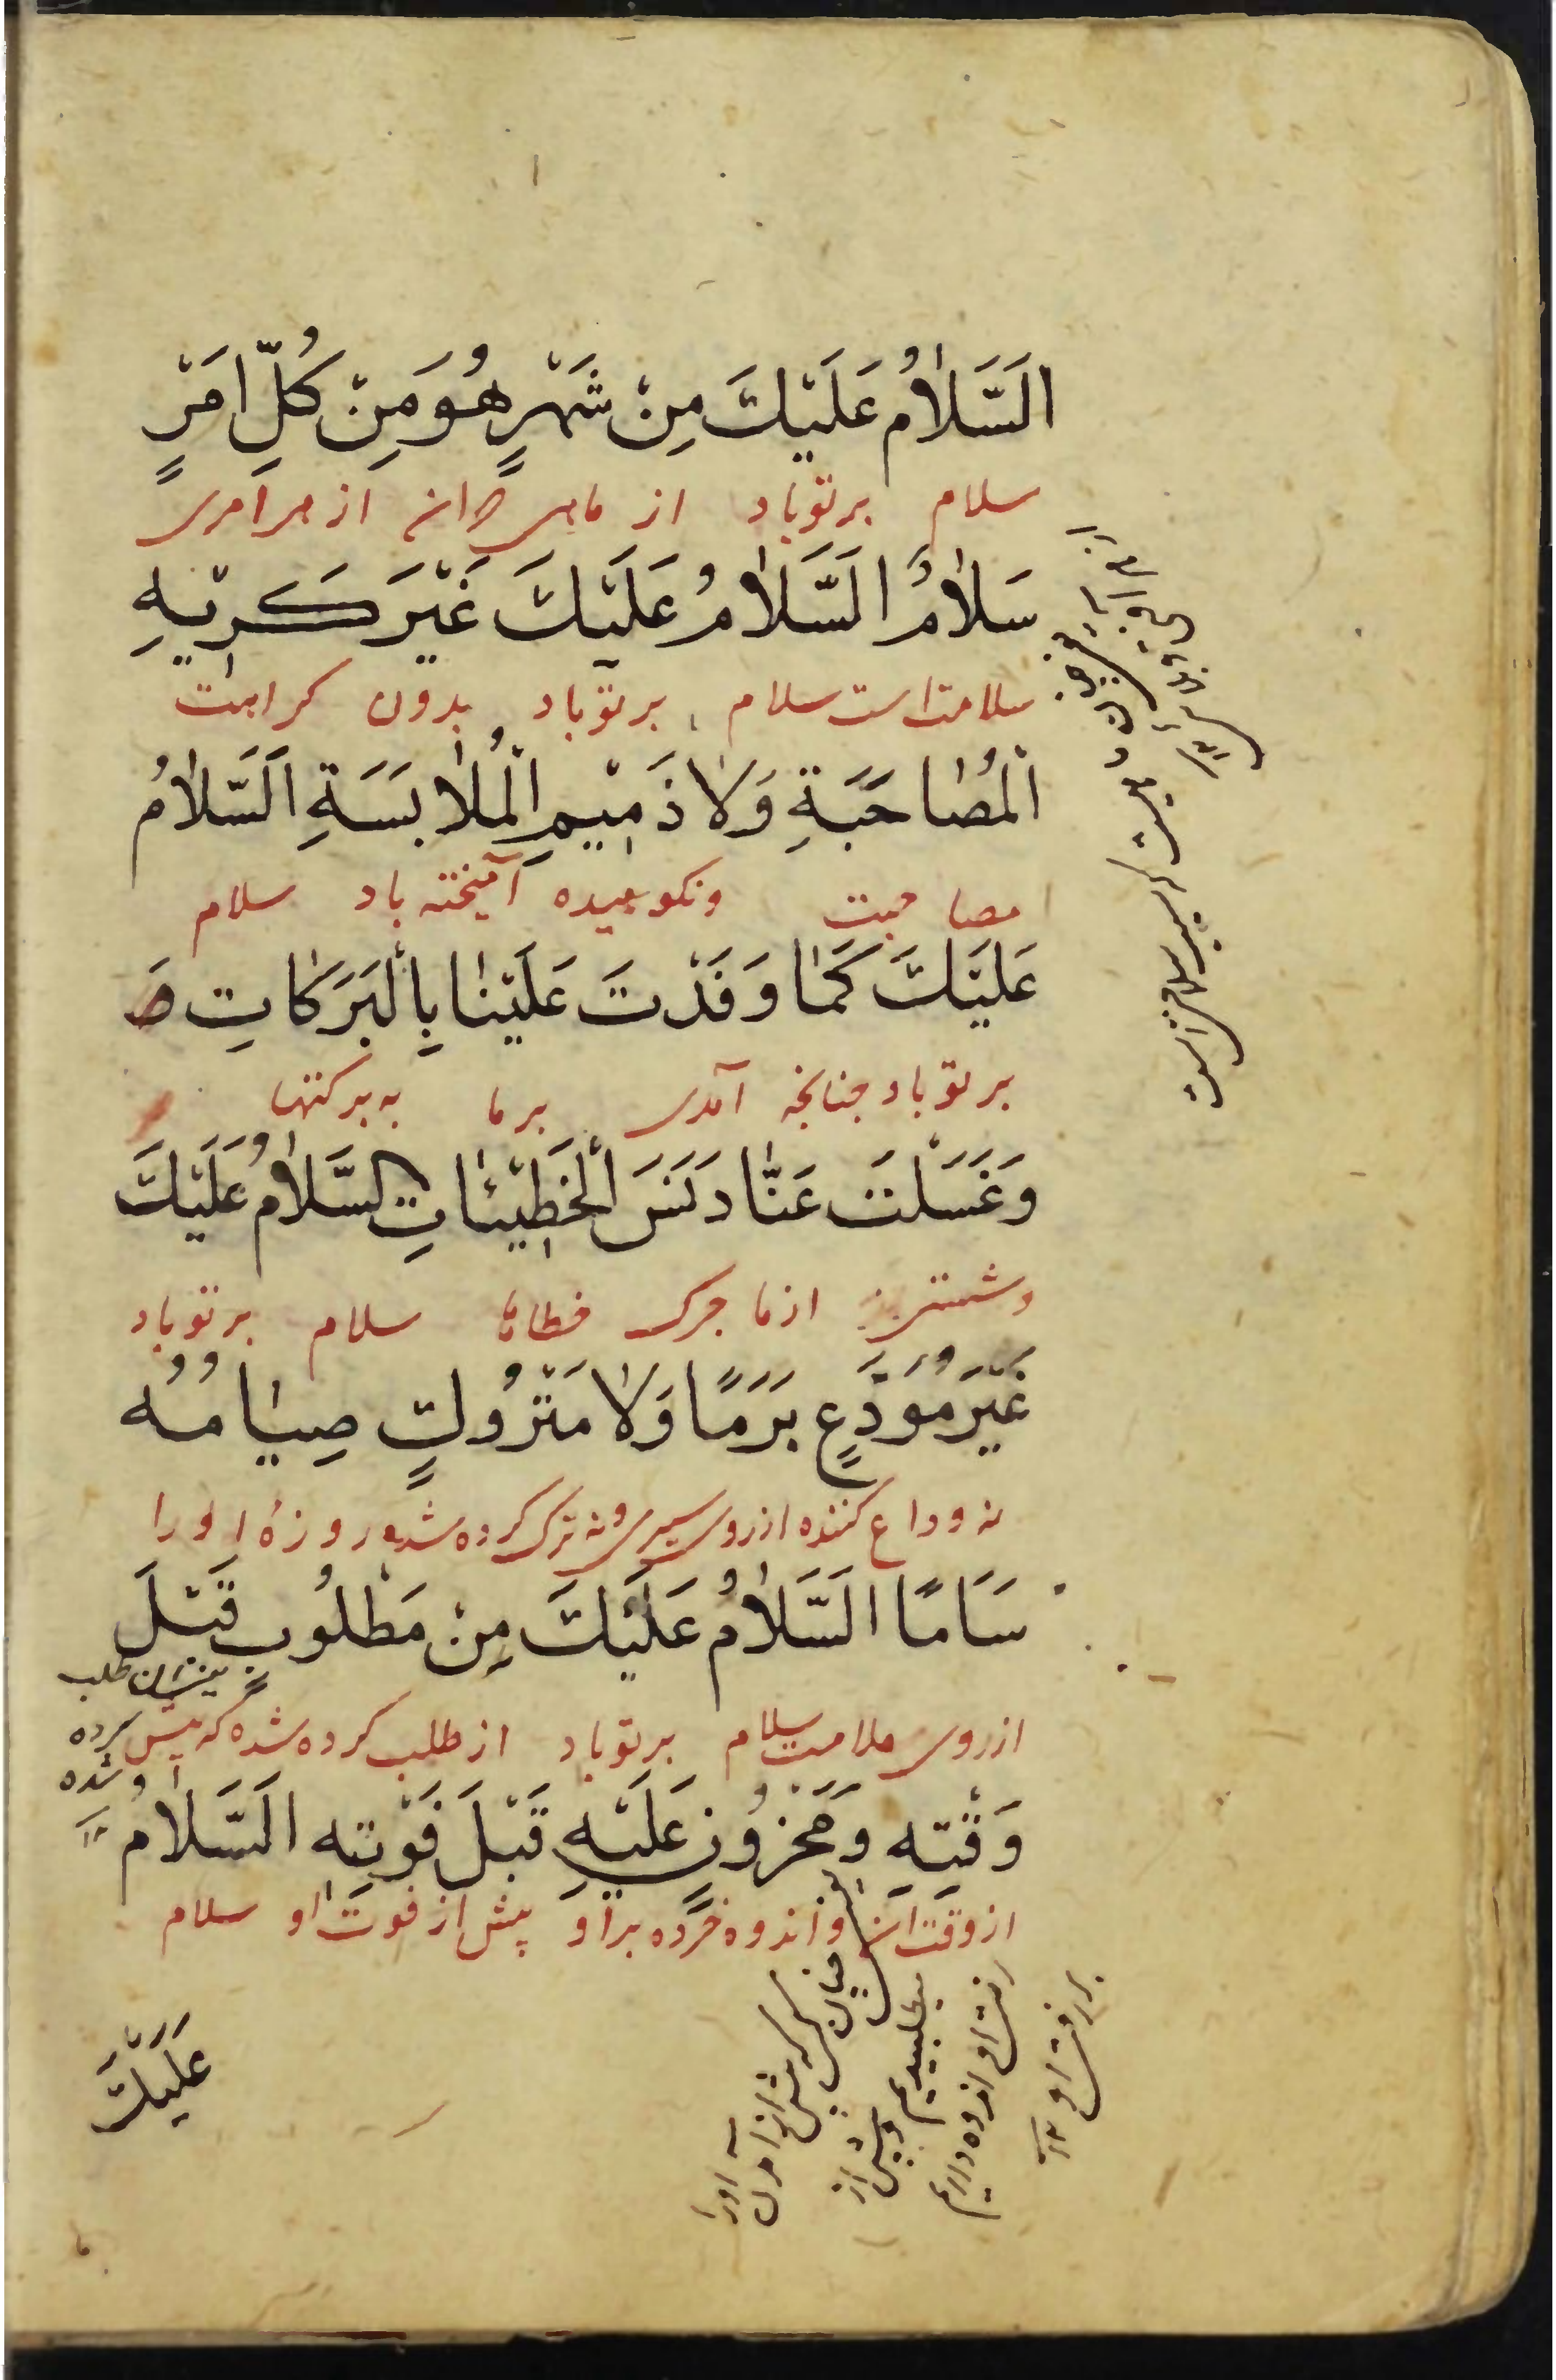 اَلسَّلَامُ عَلَيْكَ مِنْ شَهْرٍ هُوَ مِنْ كُلِّ اَمْرٍ
سلام بر تو باد از ماهی که آن از هر امری
سَلَامٌ اَلسَّلَامُ عَلَيْكَ غَيْرَ كَرِيْهِ
سلامت است سلام بر تو باد بدون کراهت
الْمُصَاحَبَةِ وَلَا ذَمِيْمِ الْمُلَابَسَةِ اَلسَّلَامُ
مصاحبت ونکوهیده آمیخته باد سلام
عَلَيْكَ كَمَا وَفَدْتَ عَلَيْنَا بِالْبَرَكَاتِ صَ
بر تو باد چنانچه آمدی بر ما به برکتها
وَغَسَلْتَ عَنَّا دَنَسَ الْخَطِيْئَاتِ اَلسَّلَامُ عَلَيْكَ
وشستی از ما چرک خطاها سلام بر تو باد
غَيْرَ مُوَدَّعٍ بَرَمًا وَلَا مَتْرُوْكٍ صِيَامُهُ
نه وداع کننده از روی سیری ونه ترک کرده شده روزهٔ او را
سَاَمًا اَلسَّلَامُ عَلَيْكَ مِنْ مَطْلُوْبٍ قَبْلَ
از روی ملامت سلام بر تو باد از طلب کرده شده که پیش
طلب
کرده
شده
وَقْتِهِ وَمَحْزُوْنٍ عَلَيْهِ قَبْلَ فَوْتِهِ اَلسَّلَامُ
از وقت آن واندوه خرده بر او پیش از فوت او سلام
که پیش از آمدن او را
میطلبیدیم وپیش از
رفتن او اندوه داریم
بر رفتن او ۱۲
عَلَيْكَ